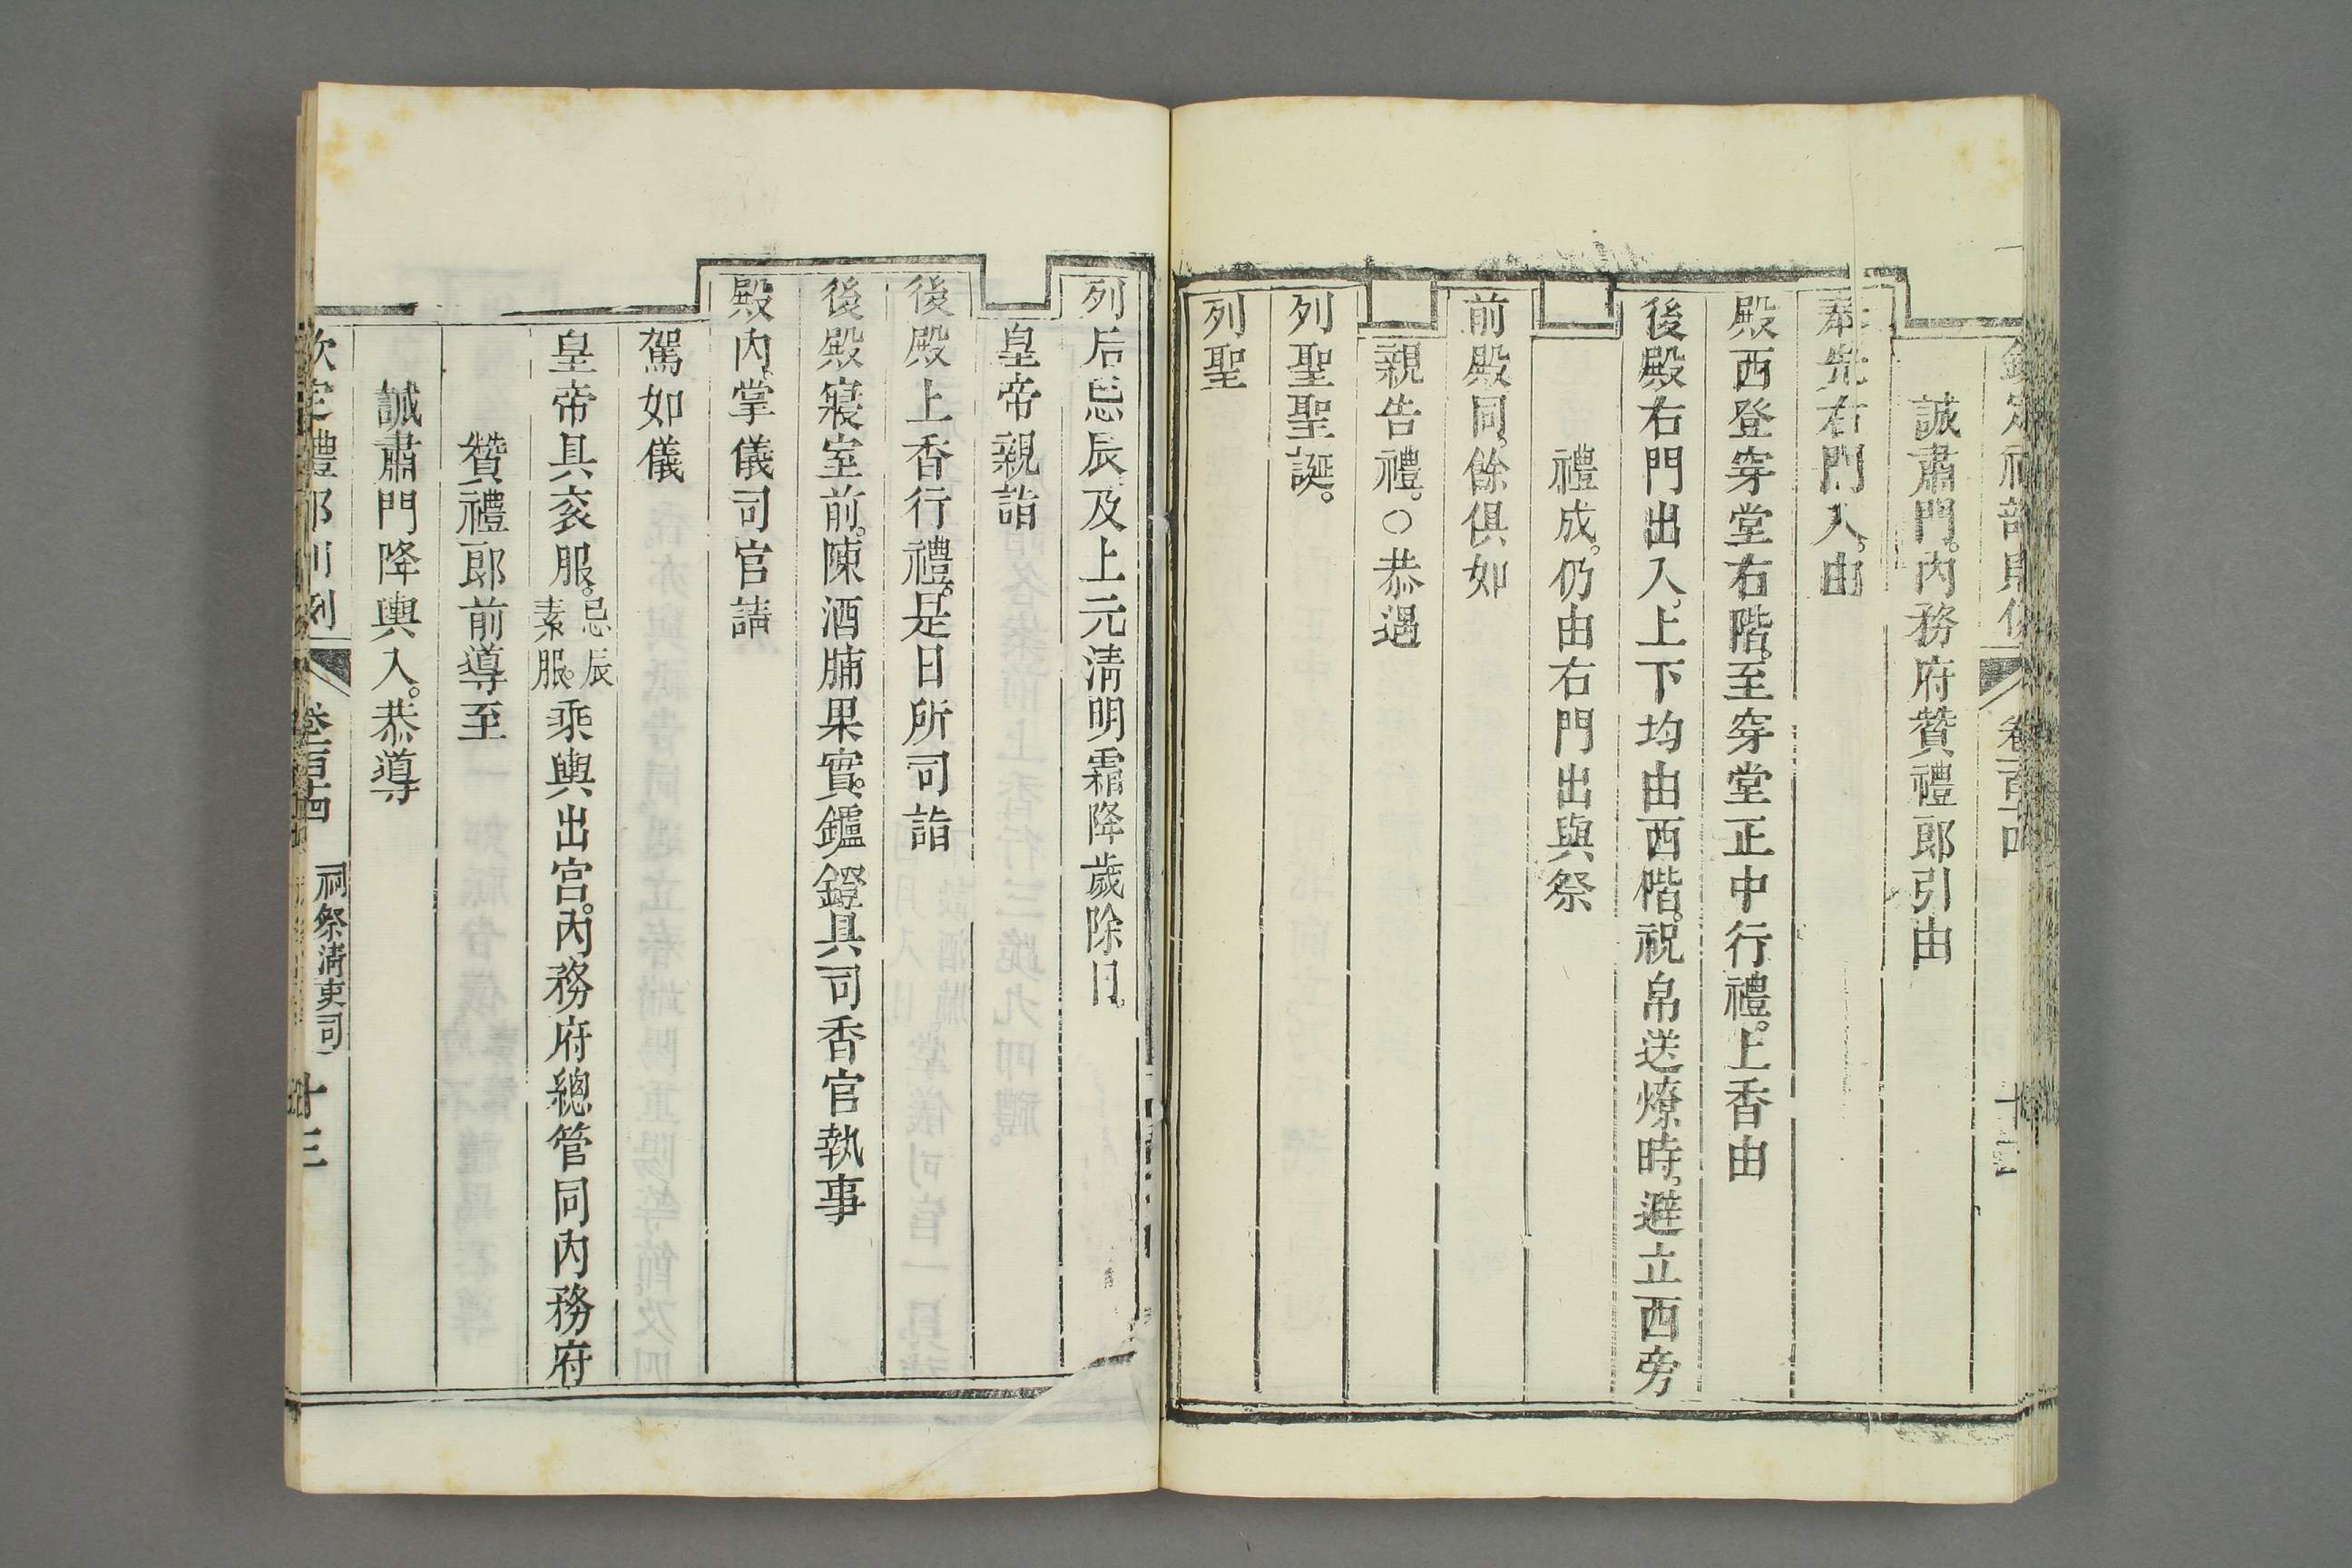 誠肅門。內務府贊禮郎引由
奉先右門入。由
殿西登穿堂右階。至穿堂正中行禮。上香由
後殿右門出入。上下均由西階。祝帛送燎時。避立西旁
禮成。仍由右門出與祭
前殿同。餘俱如
親告禮。○恭遇
列聖聖誕。
列聖
列后忌辰及上元清明霜降歲除日。
皇帝親詣
後殿上香行禮。是日所司詣
後殿寢室前。陳酒脯果實。鑪鐙具。司香官執事
殿內。掌儀司官請
駕如儀
皇帝具袞服。忌辰素服。乘輿出宮。內務府總管同內務府
贊禮郎前導至
誠肅門降輿入。恭導
欽定禮部則例
卷百十四
祠祭淸吏司
十三